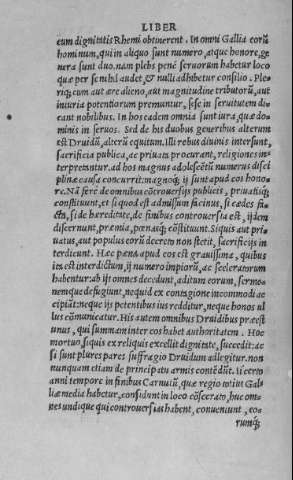 LIBER
eum dignitatis Rhemi obtinerent. In omni Gallia eorũ
hominum, qui in aliquo sunt numero, atque honore, ge
nera sunt duo. nam plebs penè seruorum habetur loco
quæ per se nihil audet, & nulli adhibetur consilio. Ple
riq; cum aut ære alieno, aut magnitudine tributorũ, aut
iniuria potentiorum premuntur, sese in seruitutem di=
cant nobilibus. In hos eadem omnia sunt iura, quæ do=
minis in seruos. Sed de his duobus generibus alterum
est Druidũ, alterũ equitum. Illi rebus diuinis intersunt,
sacrificia publica, ac priuata procurant, religiones in=
terpretantur. ad hos magnus adolescẽtũ numerus disci
plinæ causa concurrit: magnoq; ij sunt apud eos hono=
re. Nã ferè de omnibus cõtrouersijs publicis, priuatisq;
constituunt, et si quod est admissum facinus, si cædes fa=
cta, si de hæreditate, de finibus controuersia est, ijdem
discernunt, præmia, pœnasq; cõstituunt. Siquis aut pri=
uatus, aut populus eorũ decreto non stetit, sacrificijs in
terdicunt. Hæc pœna apud eos est grauissima, quibus
ita est interdictum, ij numero impiorũ, ac sceleratorum
habentur: ab ijs omnes decedunt, aditum eorum, sermo=
nemque defugiunt, ne quid ex contagione incommodi ac
cipiãt: neque ijs petentibus ius redditur, neque honos ul
lus cõmunicatur. His autem omnibus Druidibus præest
unus, qui summam inter eos habet authoritatem. Hoc
mortuo, si quis ex reliquis excellit dignitate, succedit: ac
si sunt plures pares suffragio Druidum adlegitur. non
nunquam etiam de principatu armis contẽdũt. ij certo
anni tempore in finibus Carnutũ, quæ regio totius Gal=
liæ media habetur, considunt in loco cõsecrato, huc om=
nes undique qui controuersias habent, conueniunt, eo=
rumq;